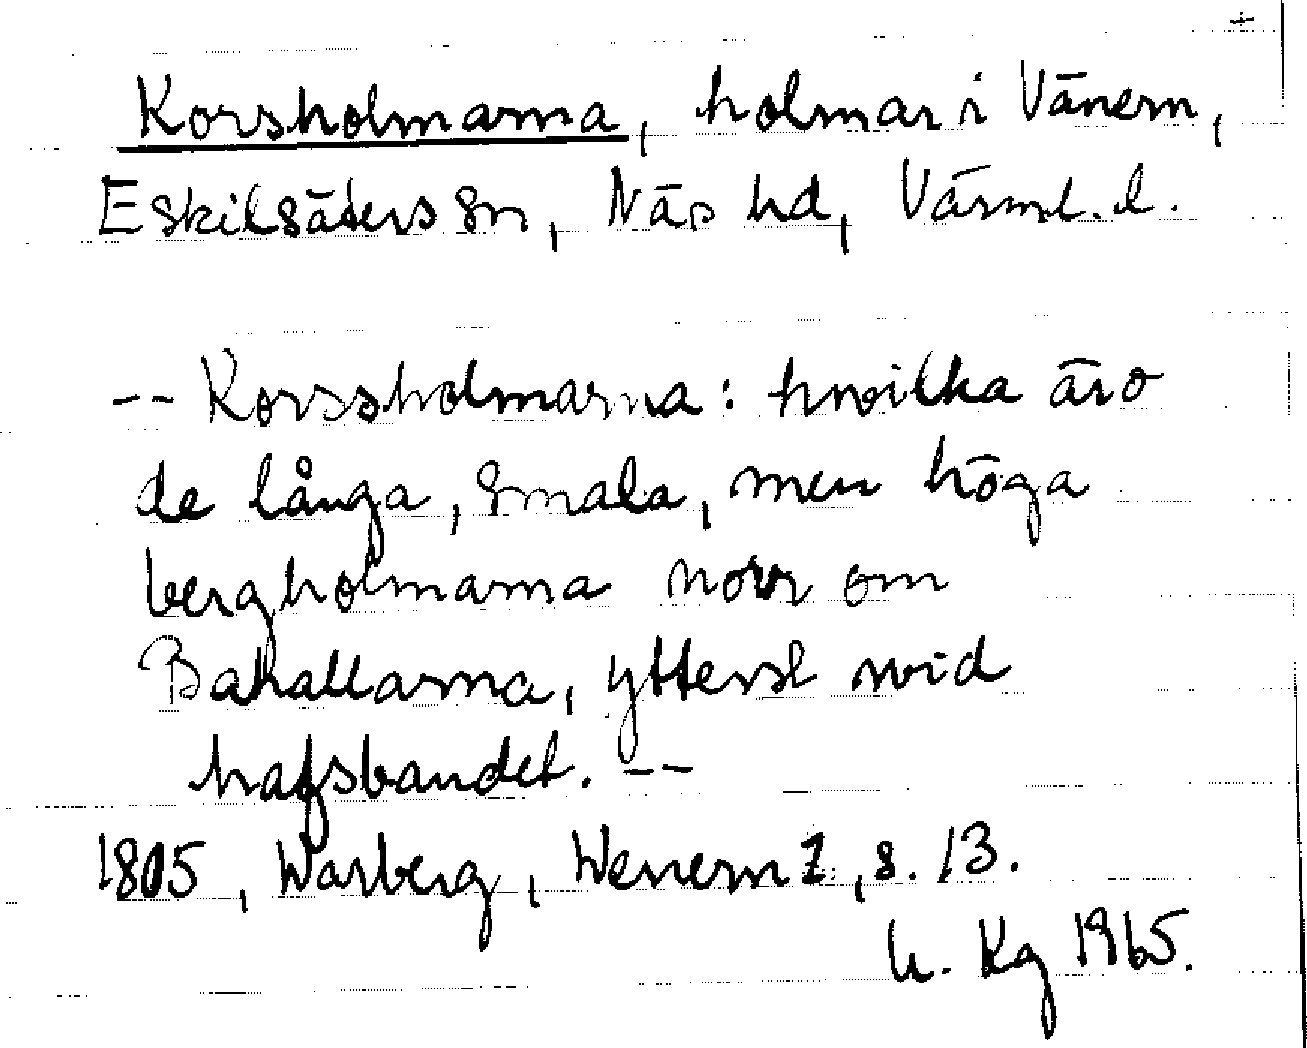 Korsholmarna, holmar i Vänern,
Eskilsäters sn, Näs hd, Värml. l.
-- Korssholmarna: hwilka äro
de långa, smala, men höga
bergholmarna norr om
Bahallarna, ytterst wid
hafsbandet. --
1805, Warberg, Wenern 1, s. 13.
U. Kg 1965.